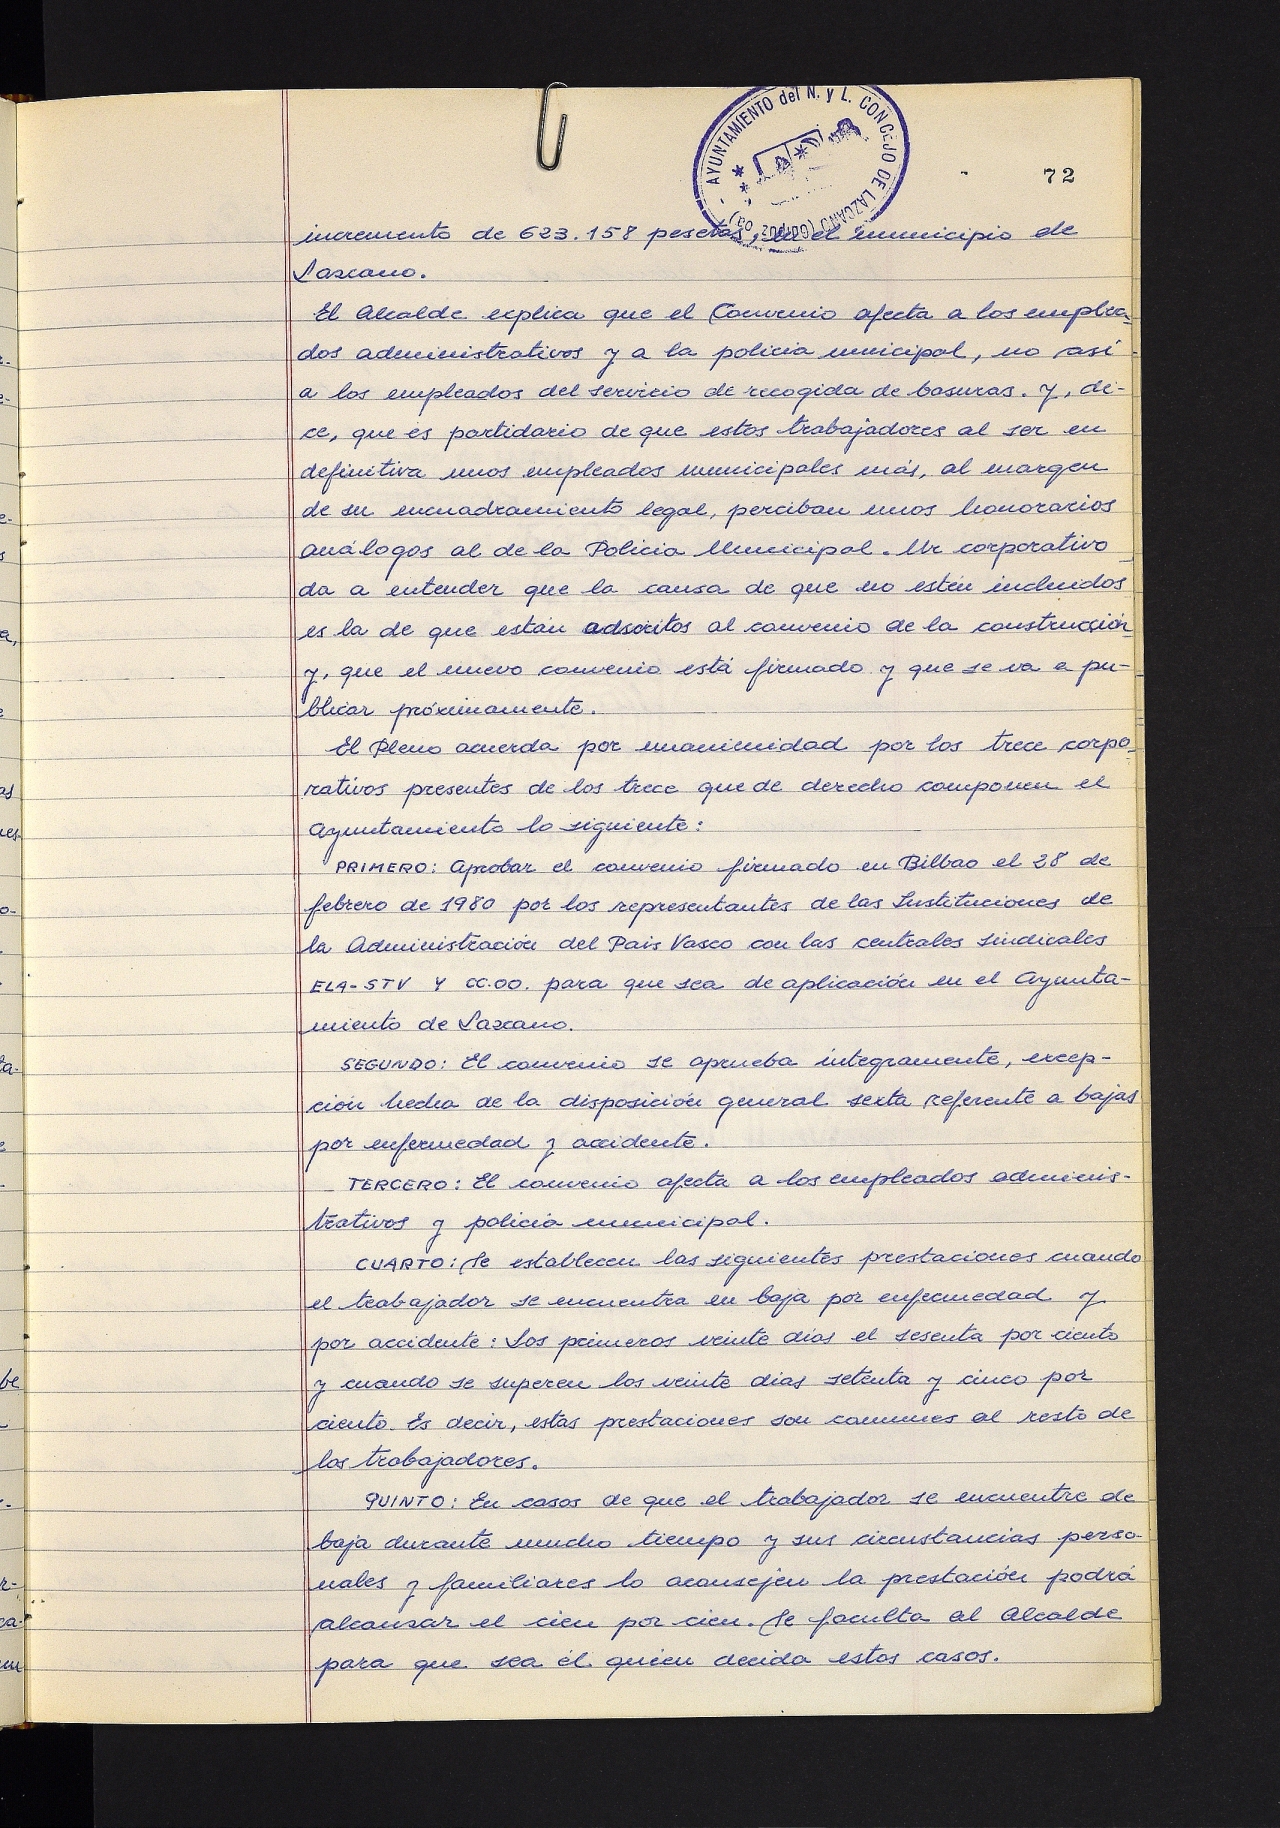 AYUNTAMIENTO del N. y L. CONCEJO DE LAZCANO (Guipúzcoa)
72
incremento de 623.158 pesetas, en el municipio de
Lazcano.
El Alcalde explica que el Convenio afecta a los emplea-
dos administrativos y a la policia municipal, no así
a los empleados del servicio de recogida de basuras. Y, di-
ce, que es partidario de que estos trabajadores al ser en
definitiva unos empleados municipales más, al margen
de su encuadramiento legal, perciban unos honorarios
análogos al de la Policia Municipal. Un corporativo
da a entender que la causa de que no estén incluidos
es la de que están adscritos al convenio de la construcción
y, que el nuevo convenio está firmado y que se va a pu-
blicar próximamente.
El Pleno acuerda por unanimidad por los trece corpo-
rativos presentes de los trece que de derecho componen el
Ayuntamiento lo siguiente:
PRIMERO: Aprobar el convenio firmado en Bilbao el 28 de
febrero de 1980 por los representantes de las Instituciones de
la Administración del Pais Vasco con las centrales sindicales
ELA-STV Y CC.OO. para que sea de aplicación en el Ayunta-
miento de Lazcano.
SEGUNDO: El convenio se aprueba integramente, excep-
ción hecha de la disposición general sexta referente a bajas
por enfermedad y accidente.
TERCERO: El convenio afecta a los empleados adminis-
trativos y policia municipal.
CUARTO: Se establecen las siguientes prestaciones cuando
el trabajador se encuentra en baja por enfermedad y
por accidente: Los primeros veinte dias el sesenta por ciento
y cuando se superen los veinte dias setenta y cinco por
ciento. Es decir, estas prestaciones son comunes al resto de
los trabajadores.
QUINTO: En casos de que el trabajador se encuentre de
baja durante mucho tiempo y sus circustancias perso-
nales y familiares lo aconsejen la prestación podrá
alcanzar el cien por cien. Se faculta al Alcalde
para que sea él quien decida estos casos.